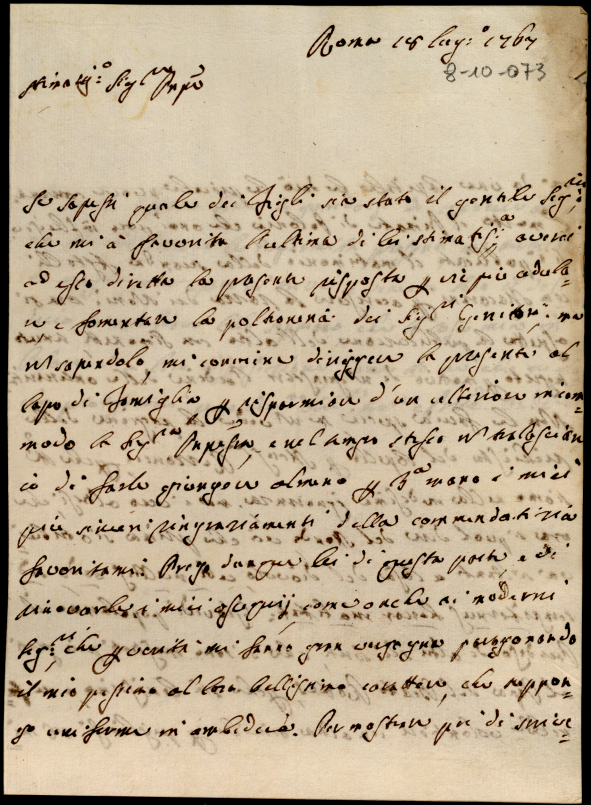 Roma 18 lug:o 1767
8-10-073
Se sapessi quale dei Figli sia stato il gentile Seg.rio
che mi à favorita l'ultima di lei stimatis.a averei
ad esso diretta la presente risposta p vie più adula=
re, e fomentare la poltroneria dei Sig.ri Genitori: ma
n sapendolo, mi conviene diriggere la presente al
Capo di Famiglia p risparmiare d'un ulteriore incom=
modo la Sig.ra e nel tempo stesso n tralascian
do di farle giungere almeno p 3.a mano i miei
più sinceri ringraziamenti della commendatizia
favoritami. Prego dunque lei di questa parte, e di
rinovarle i miei ossequij come anche ai moderni
Seg.ri che p verità mi fanno gran vergogna paragonando
il mio pessimo al loro bellissimo carattere, che suppon=
go uniforme in ambedue. Per mostrare poi di scrive=